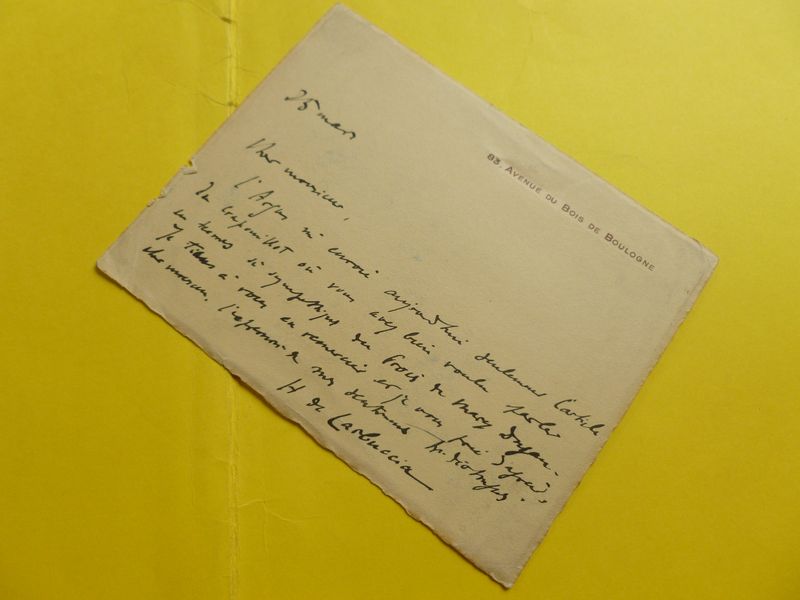 83, AVENUE DU BOIS DE BOULOGNE
25 mars
Cher monsieur,
L'Argus m'envoie aujourd'hui seulement l'article
du Crapouillot où vous avez bien voulu parler
en termes si sympathiques du Procès de Mary Dugan.
Je tiens à vous en remercier et je vous prie d'agréer,
cher monsieur, l'expression de mes sentiments
H de Carbuccia